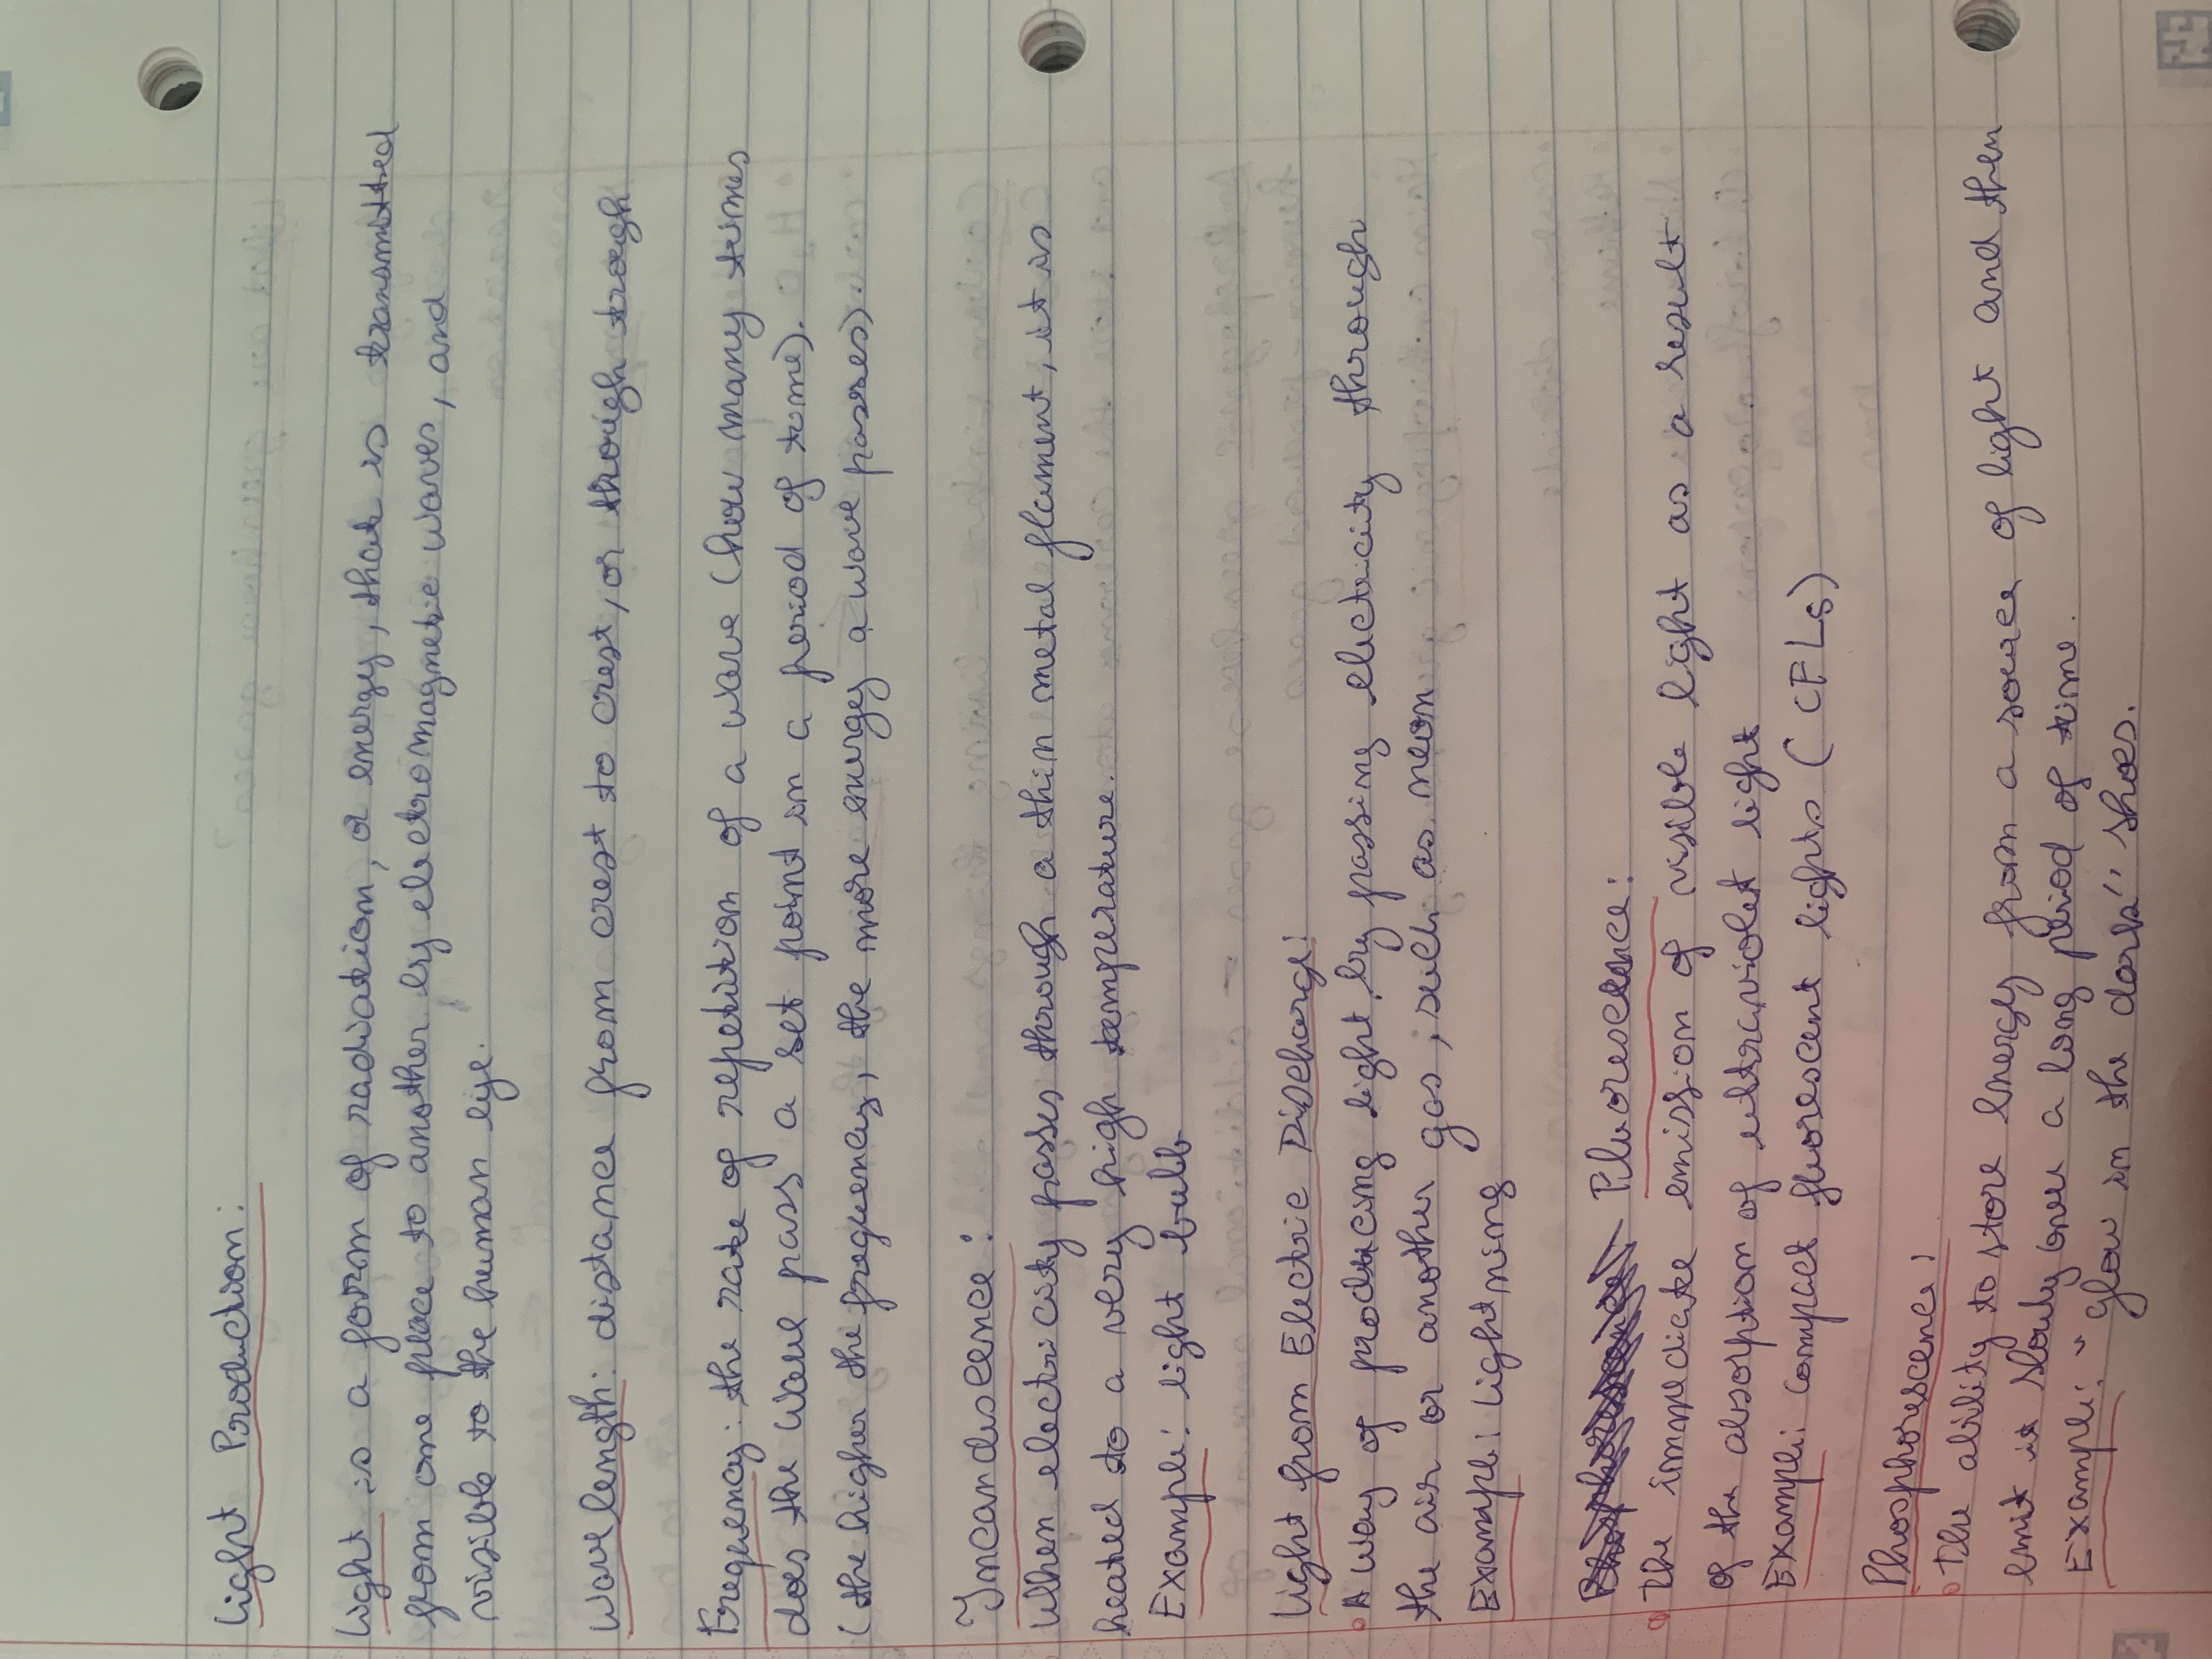 Light Production:
Light is a form of radiation, or energy, that is transmitted
from one place to another by electromagnetic waves, and
visible to the human eye.
Wavelength: distance from crest to crest, or through trough
Frequency: the rate of repetition of a wave (how many times
does the wave pass a set point in a period of time).
(the higher the frequency, the more energy a wave passes).
Incandescence:
When electricity passes through a thin metal flament, it is
heated to a very high temperature.
Example: light bulb
Light from Electric Discharge:
• A way of producing light by passing electricity through
the air or another gas, such as neon
Example: lightning
Fluorescence:
• The immediate emission of visible light as a result
of the absorption of ultraviolet light
Example: compact fluorescent lights (CFLs)
Phosphorescence:
• The ability to store energy from a source of light and then
emit it slowly over a long period of time.
Example: "Glow in the dark" shoes.